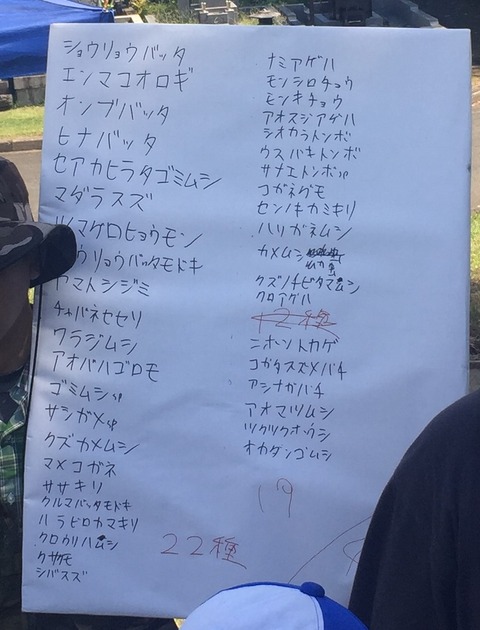 ショウリョウバッタ
エンマコオロギ
オンブバッタ
ヒナバッタ
セアカヒラタゴミムシ
マダラスズ
ツマグロヒョウモン
ウリョウバッタモドキ
ヤマトシジミ
チャバネセセリ
ワラジムシ
アオバハゴロモ
ゴミムシsp
サシガメsp
クズカメムシ
マメコガネ
ササキリ
クルマバッタモドキ
ハラビロカマキリ
クロウリハムシ
クサグモ
シバスズ
22種
ナミアゲハ
モンシロチョウ
モンキチョウ
アオスジアゲハ
シオカラトンボ
ウスバキトンボ
サナエトンボsp
コガネグモ
センノキカミキリ
ハリガネムシ
カメムシ
クズノチビタマムシ
クロアゲハ
12種
ニホントカゲ
コガタスズメバチ
アシナガバチ
アオマツムシ
ツクツクホウシ
オカダンゴムシ
19